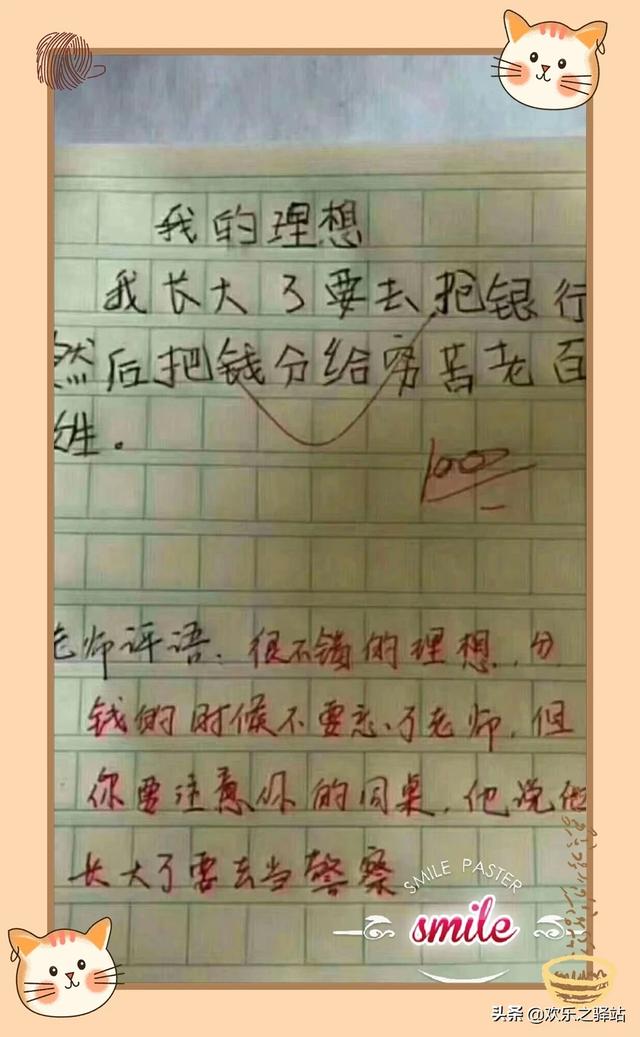 我的理想
我长大了要去抢银行
然后把钱分给穷苦老百
姓。
100
老师评语：很不错的理想，分
钱的时候不要忘了老师，但
你要注意你的同桌，他说他
长大了要去当警察
SMILE PASTER
smile
头条 @欢乐之驿站